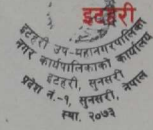 इटहरी
इटहरी उप-महानगरपालिका
नगर कार्यपालिकाको कार्यालय
इटहरी, सुनसरी
प्रदेश नं.-१, सुनसरी, नेपाल
स्था. २०७३